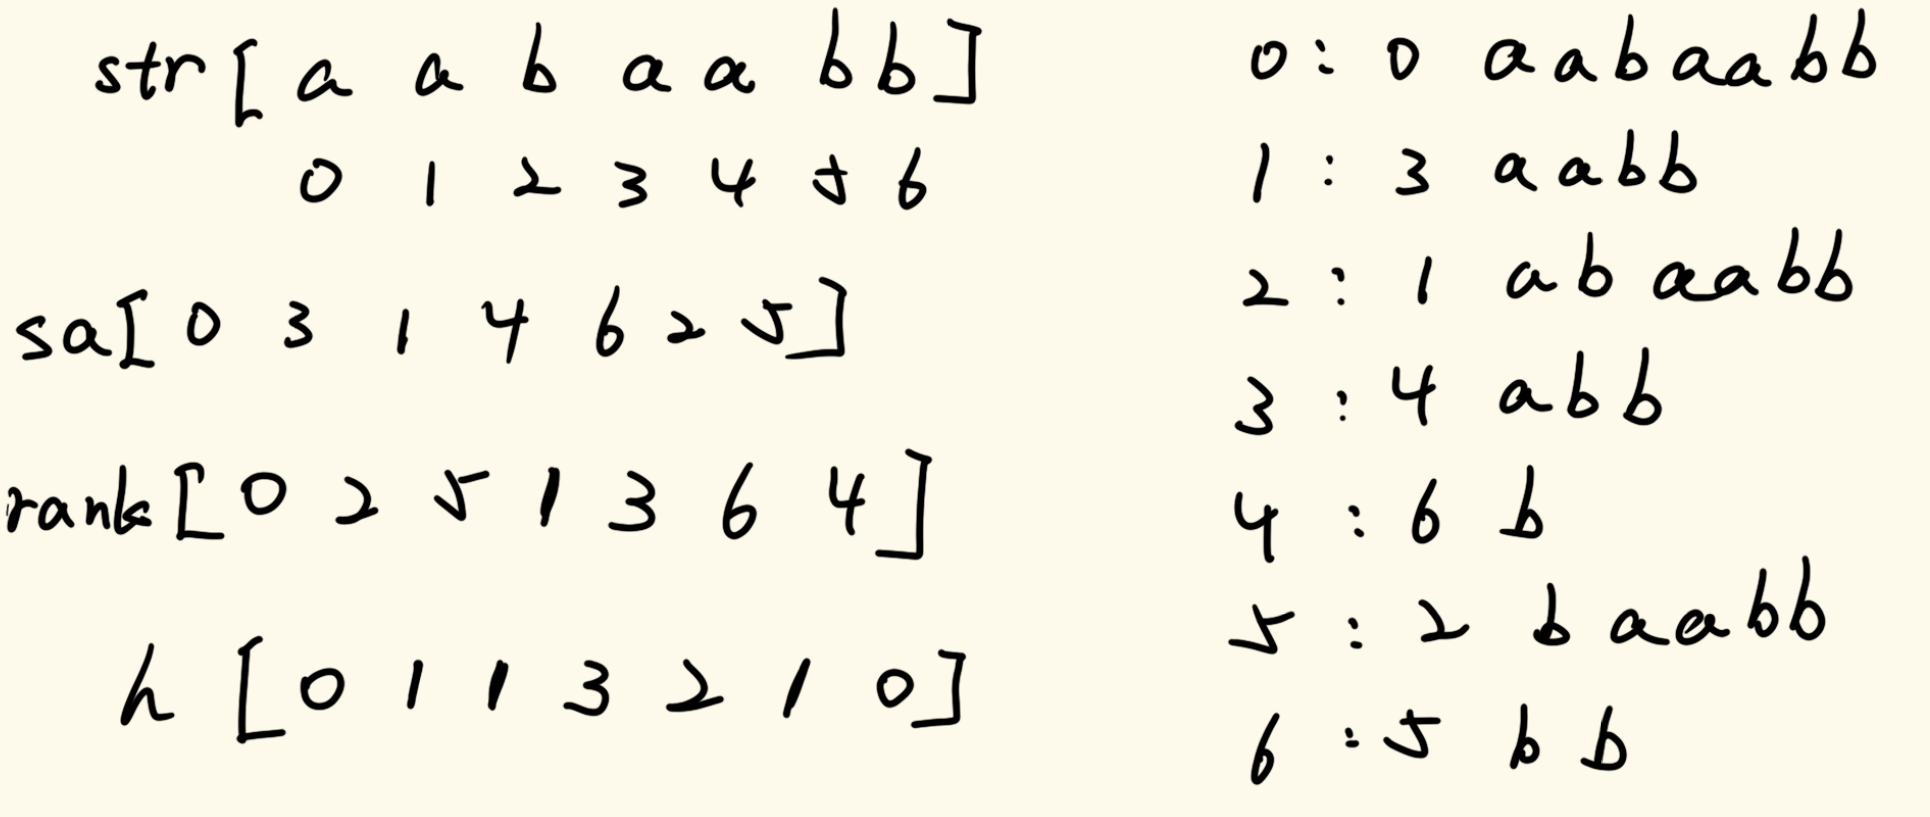 str [ a a b a a b b ]
0 1 2 3 4 5 6
sa [ 0 3 1 4 6 2 5 ]
rank [ 0 2 5 1 3 6 4 ]
h [ 0 1 1 3 2 1 0 ]
0 : 0 aabaabb
1 : 3 aabb
2 : 1 abaabb
3 : 4 abb
4 : 6 b
5 : 2 baabb
6 : 5 bb